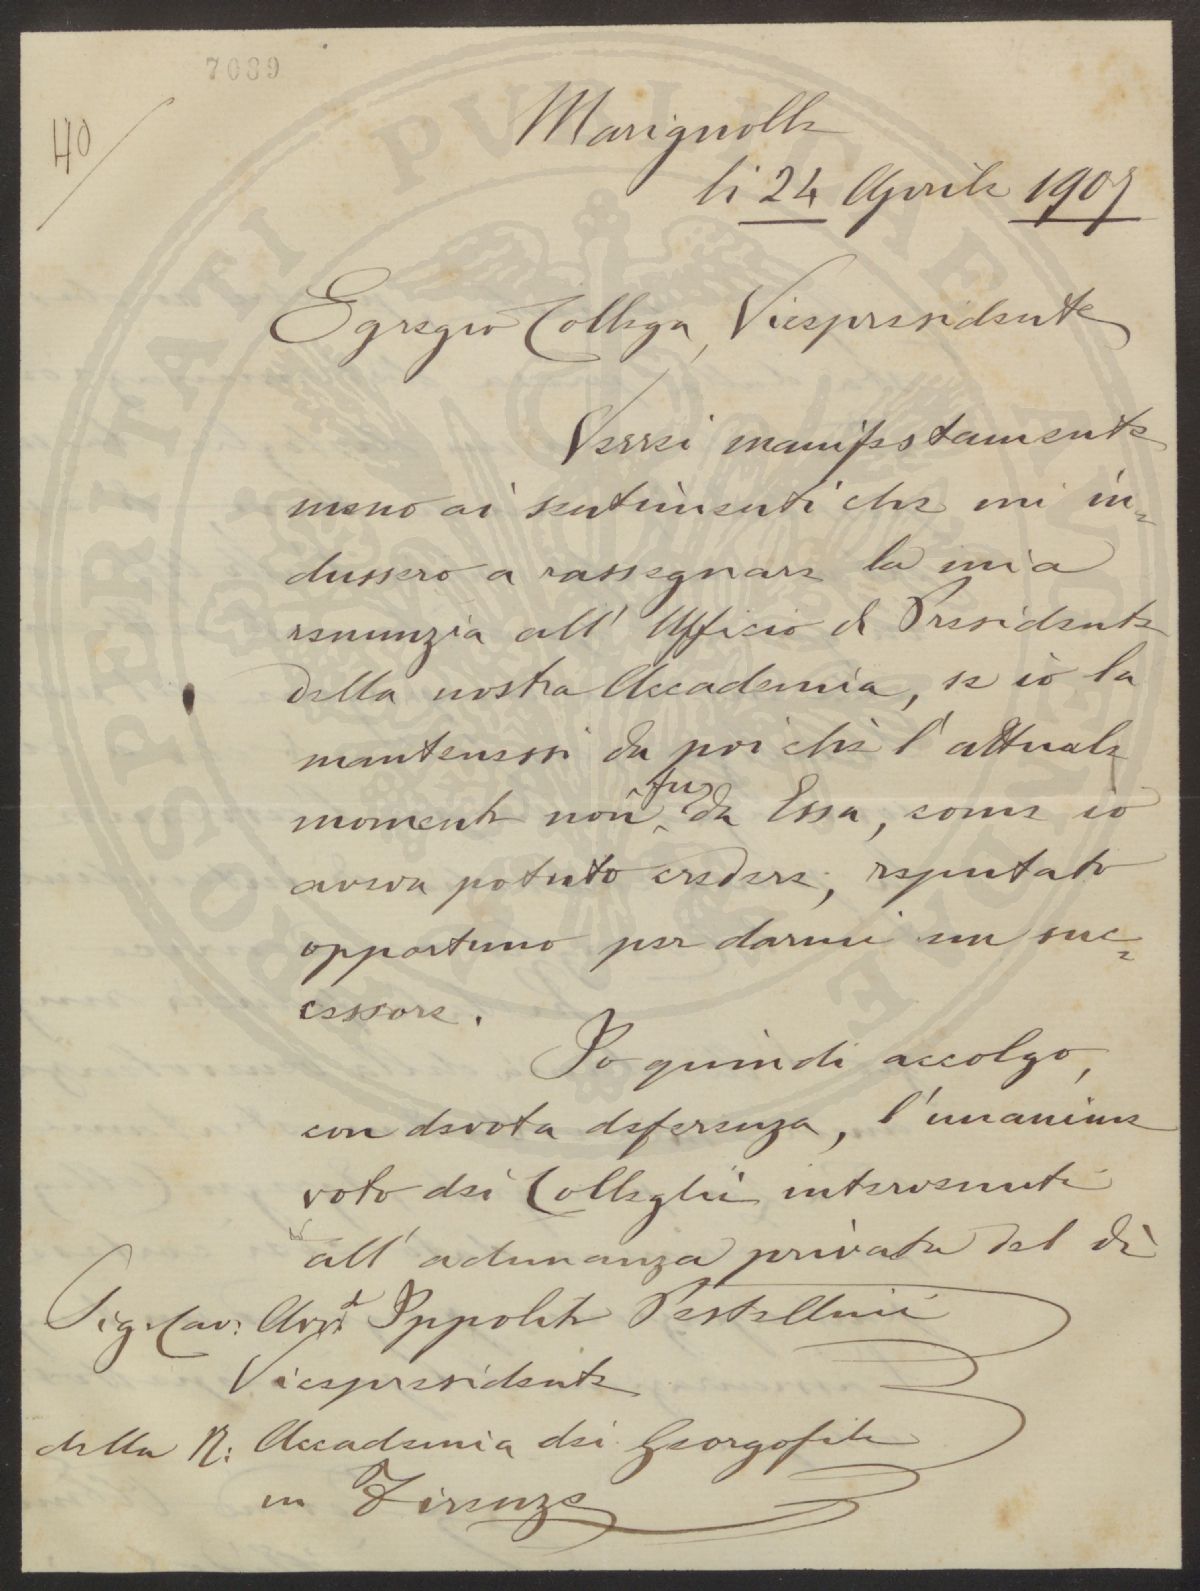 7089
40
Marignolle
li 24 Aprile 1907
Egregio Collega, Vicepresidente
Verrei manifestamente
meno ai sentimenti che mi in=
dussero a rassegnare la mia
renunzia all' Ufficio di Presidente
della nostra Accademia, se io la
mantenessi da poi chè l'attuale
momento non fu da Essa, come io
aveva potuto credere, reputato
opportuno per darmi un suc=
cessore.
Io quindi accolgo,
con devota deferenza, l'unanime
voto dei Colleghi intervenuti
all' adunanza privata del dì
Sig. Cav: Avv.t Ippolito Pestellini
Vicepresidente
della R: Accademia dei Georgofili
in Firenze
PROSPERITATI PVBLICAE AVGENDAE